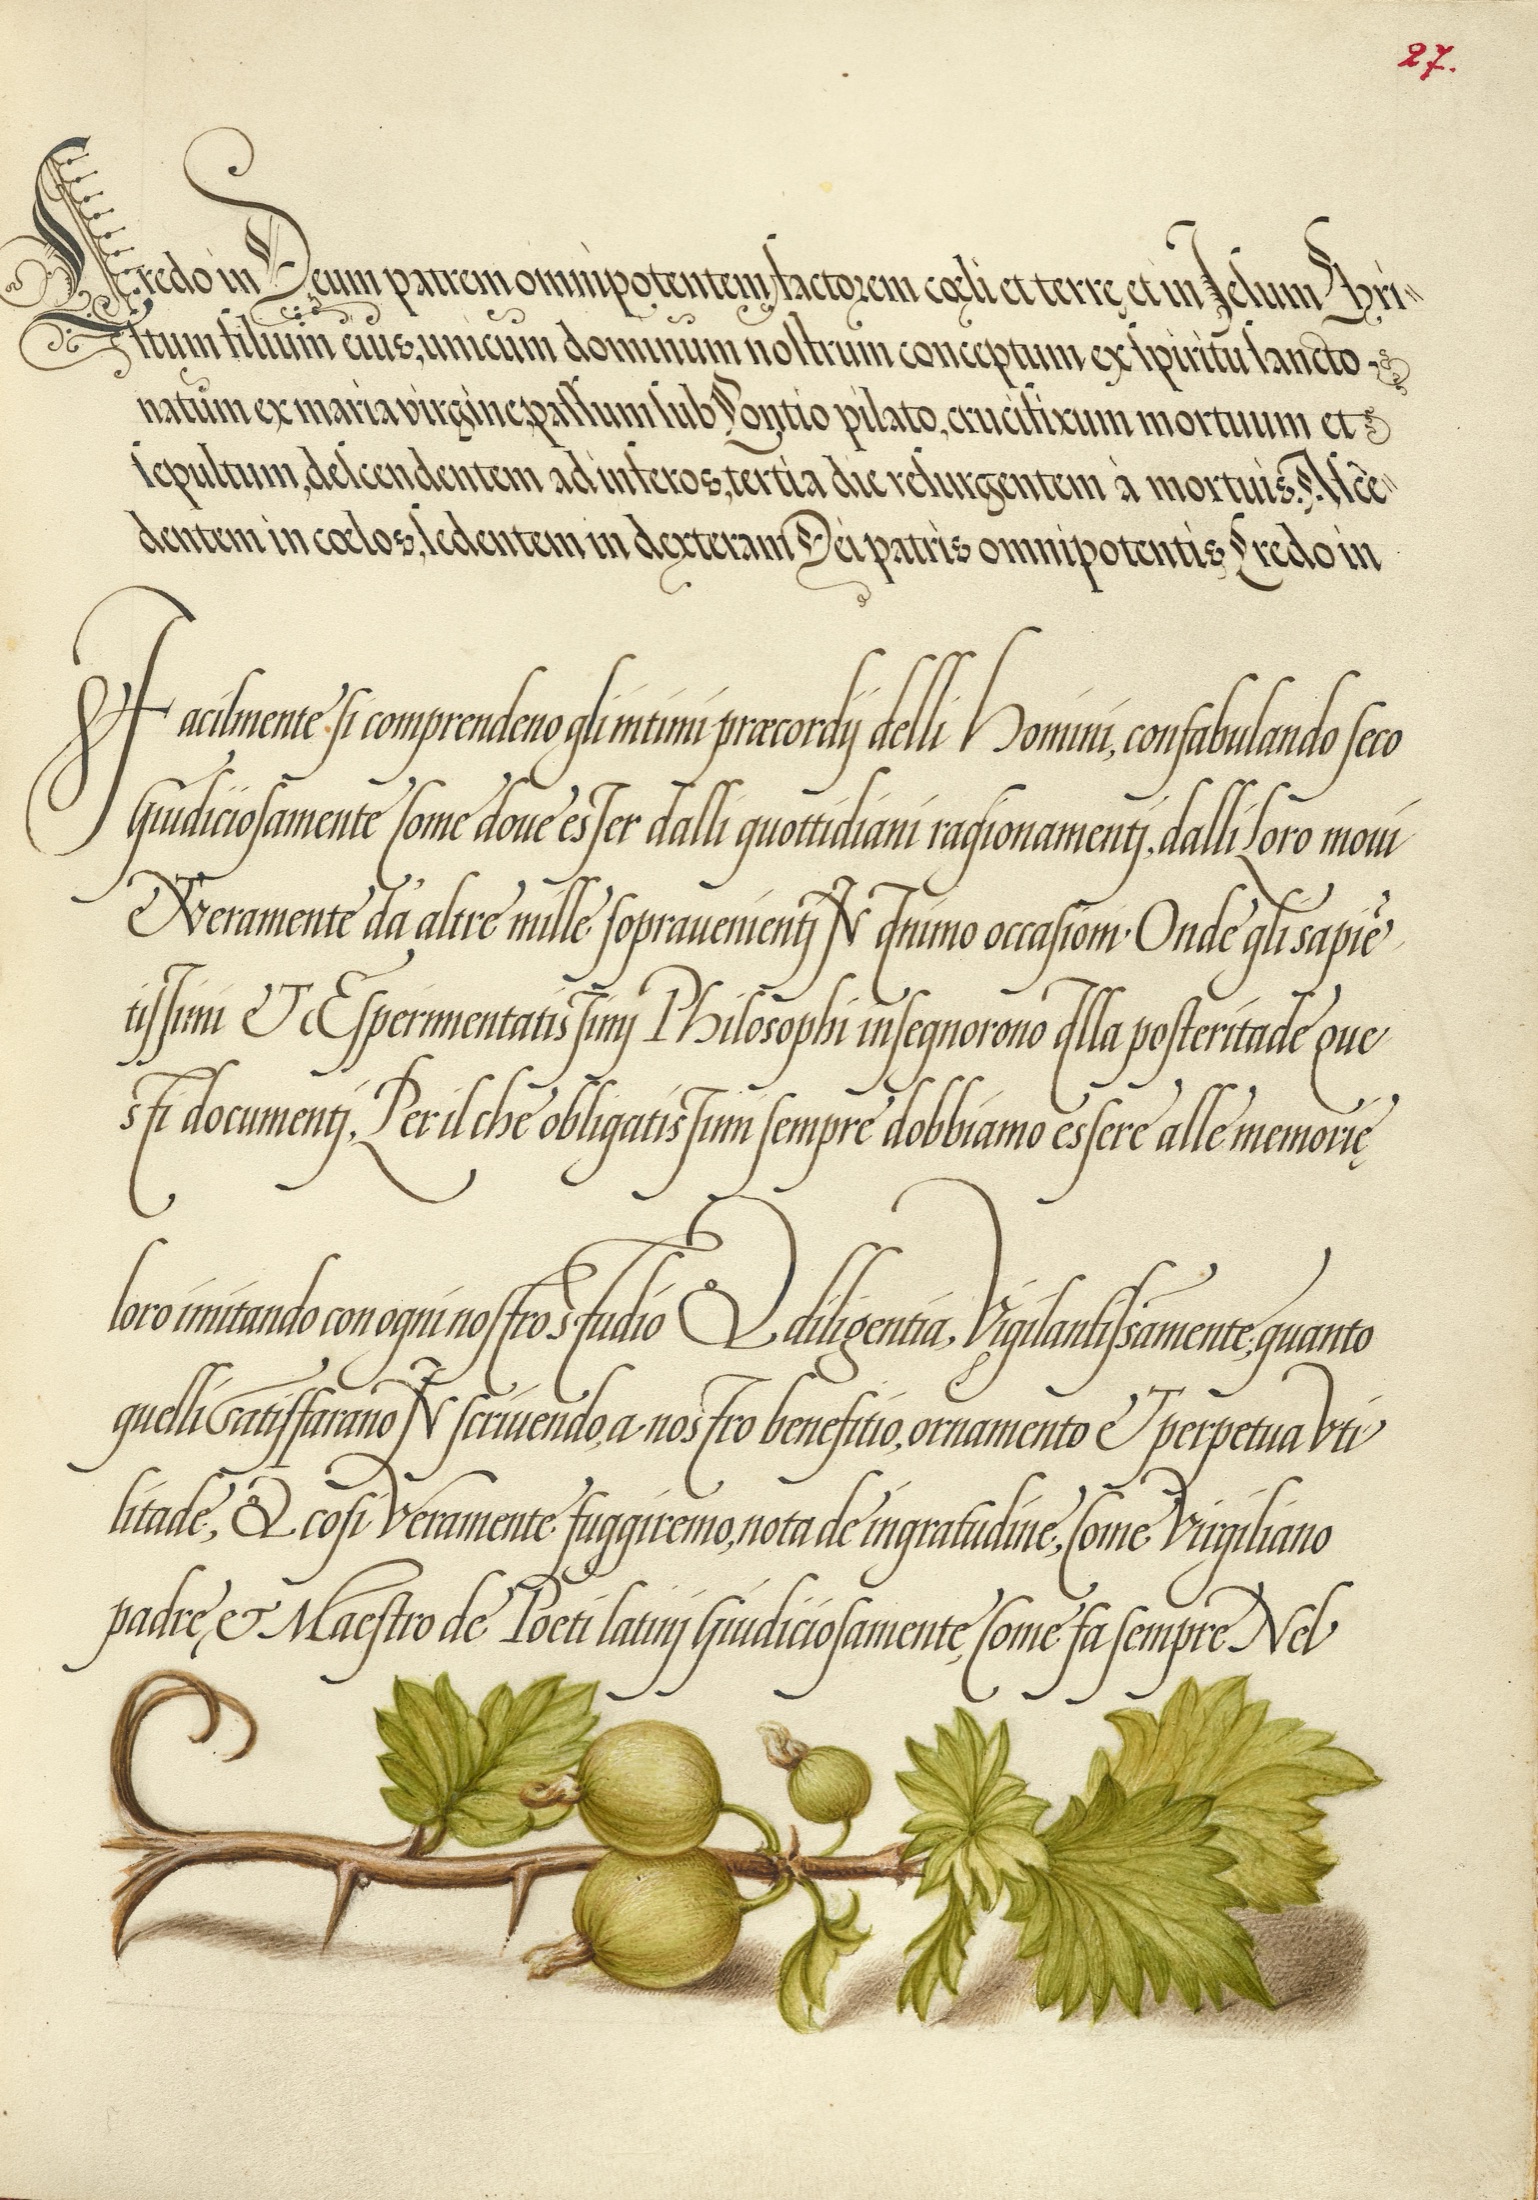 27.
Credo in Deum patrem omnipotentem, factorem cœli et terrę, et in Jesum Chri„
stum filium eius, unicum dominum nostrum conceptum ex spiritu sancto
natum ex maria virgine, passum sub Pontio pilato, crucifixum mortuum et
sepultum, descendentem ad inferos, tertia die resurgentem à mortuis. Ascē„
dentem in cœlos, sedentem in dexteram Dei patris omnipotentis Credo in
Facilmente si comprendeno gli intimi præcordij delli Homini, confabulando seco
Giudiciosamente Come doue esser dalli quottidiani ragionamenti, dalli Loro moui
O Veramente da altre mille soprauenienti IN Animo occasioni. Onde gli sapiē
tissimi ET Esperimentatissimi Philosophi insegnorono Alla posteritade que
sti documenti, Per il che obligatissimi sempre dobbiamo essere alle memorię
loro imitando con ogni nostro studio & diligentia, Vigilantissamente, quanto
quelli Satisfarano IN scriuendo, a nostro benefitio, ornamento ET perpetua Vti
litade, & cosi Veramente fuggiremo, nota de ingratudine, Come Virgiliano
padre, et Maestro de Poeti latini Giudiciosamente, Come fa sempre Nel